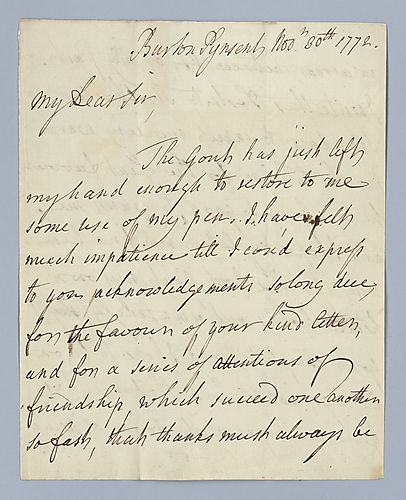 Burton Pynsent, Nov.r 30th 1772.
My Dear Sir,
The Gout has just left
my hand enough to restore to me
some use of my pen. I have felt
much impatience till I cou'd express
to you acknowledgements so long due,
for the favour of your kind letter,
and for a series of attentions of
friendship, which succeed one another
so fast, that thanks must always be